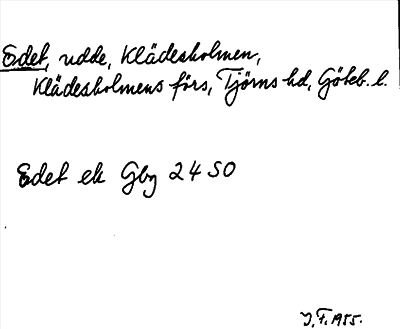 Edet, udde, Klädesholmen,
Klädesholmens förs, Tjörns hd, Göteb. l.
Edet ek Gbg 24 SO
J.F. 1955.